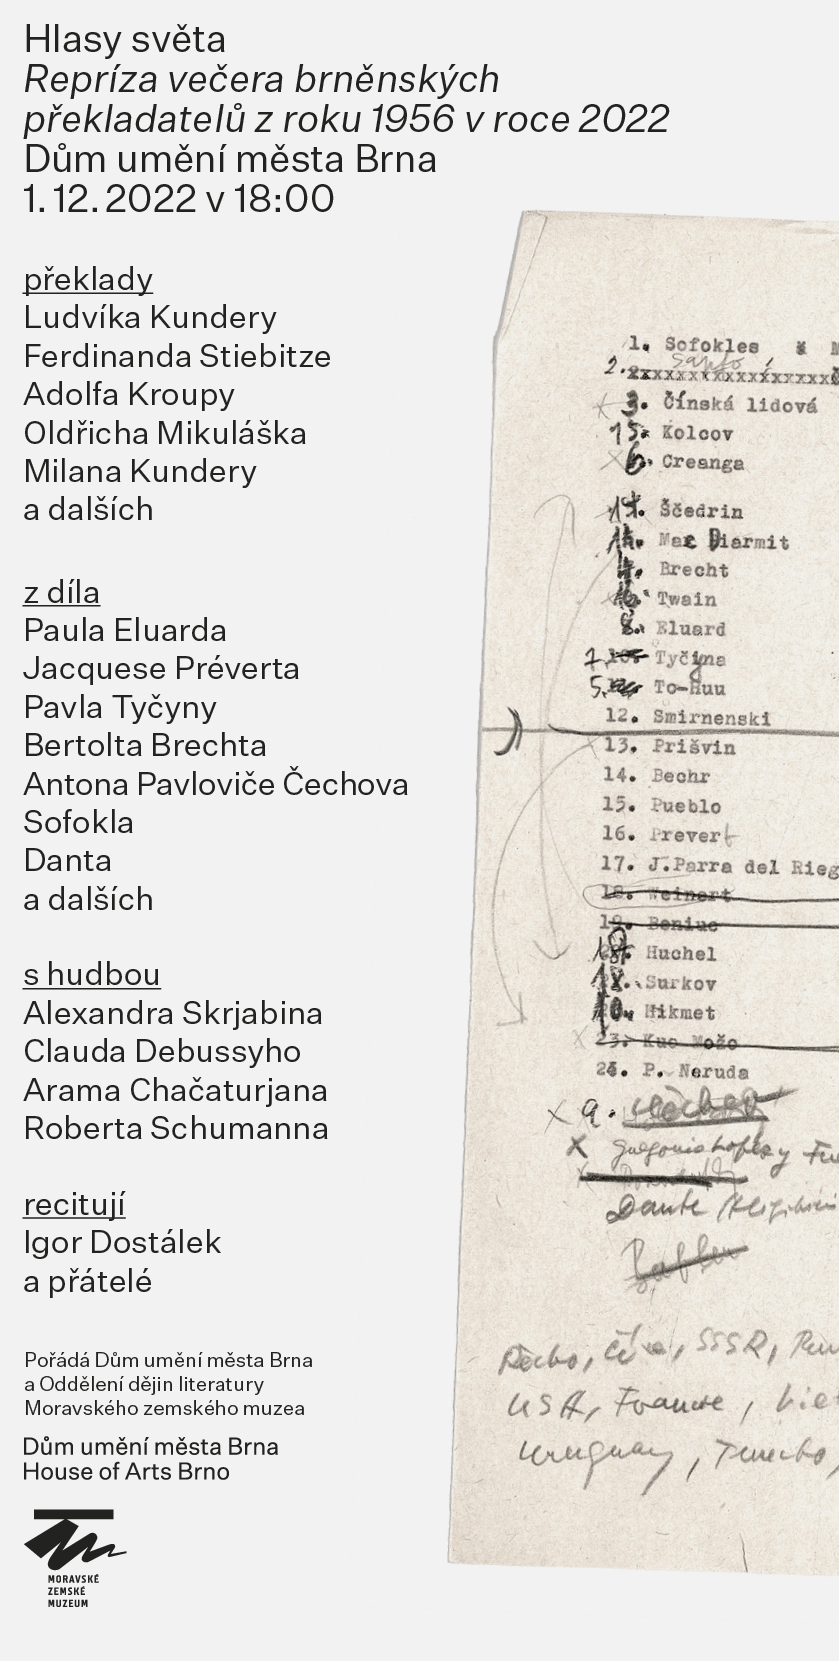 Hlasy světa
Repríza večera brněnských
překladatelů z roku 1956 v roce 2022
Dům umění města Brna
1. 12. 2022 v 18:00
překlady
Ludvíka Kundery
Ferdinanda Stiebitze
Adolfa Kroupy
Oldřicha Mikuláška
Milana Kundery
a dalších
z díla
Paula Eluarda
Jacquese Préverta
Pavla Tyčyny
Bertolta Brechta
Antona Pavloviče Čechova
Sofokla
Danta
a dalších
s hudbou
Alexandra Skrjabina
Clauda Debussyho
Arama Chačaturjana
Roberta Schumanna
recitují
Igor Dostálek
a přátelé
Pořádá Dům umění města Brna
a Oddělení dějin literatury
Moravského zemského muzea
Dům umění města Brna
House of Arts Brno
MORAVSKÉ
ZEMSKÉ
MUZEUM
1. Sofokles
2.
3. Čínská lidová
15. Kolcov
6. Creanga
Ščedrin
Mac Diarmit
Brecht
Twain
8. Eluard
7. Tyčyna
5. To-Huu
12. Smirnenski
13. Prišvin
14. Bechr
15. Pueblo
16. Prevert
17. J.Parra del Rieg
18. Weinert
19. Beniuc
Huchel
Surkov
10. Hikmet
23. Kuo Možo
P. Neruda
9.
Dante
SSSR,
USA, Francie,
Uruguay, Turecko,